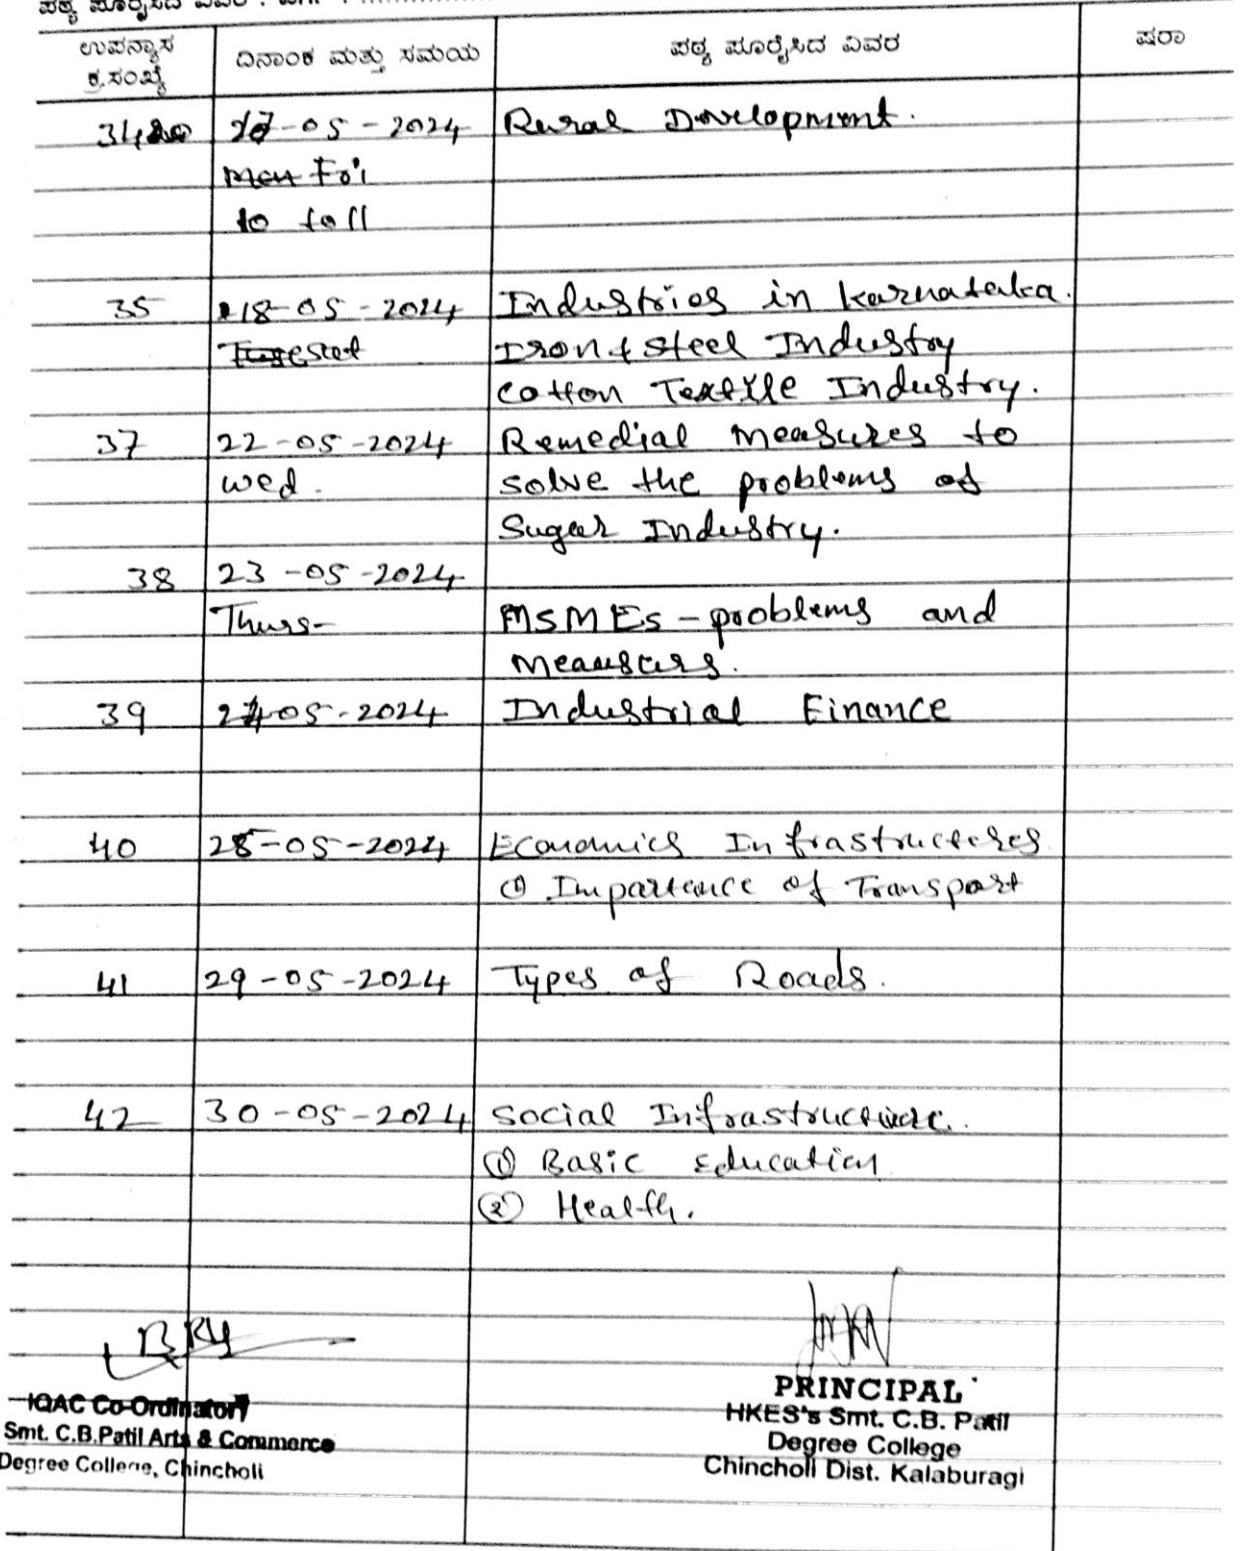 ಉಪನ್ಯಾಸ ಕ್ರ.ಸಂಖ್ಯೆ ದಿನಾಂಕ ಮತ್ತು ಸಮಯ ಪಠ್ಯ ಪೂರೈಸಿದ ವಿವರ ಷರಾ
34 17-05-2024 Rural Development.
to
35 18-05-2024 Industries in Karnataka.
Iron & Steel Industry
Cotton Textile Industry.
37 22-05-2024 Remedial Measures to
wed. solve the problems of
Sugar Industry.
38 23-05-2024
Thurs- MSMEs - problems and
39 24-05-2024 Industrial Finance
40 28-05-2024 Economics Infrastructures
① Impartance of Transport
41 29-05-2024 Types of Roads.
42 30-05-2024 Social Infrastructure.
① Basic Education
② Health.
IQAC Co-Ordinator
Smt. C.B.Patil Arts & Commerce
Degree College, Chincholi
PRINCIPAL
HKES's Smt. C.B. Patil
Degree College
Chincholi Dist. Kalaburagi